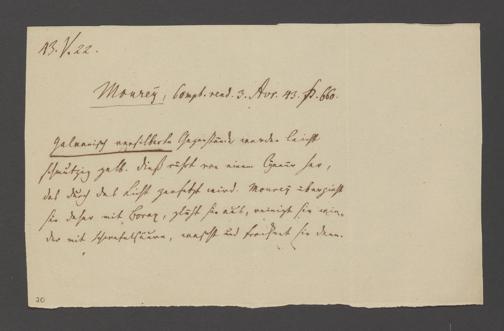 43. V. 22.
Mourey, Compt. rend. 3. Avr. 43. p. 660.
Galvanisch versilberte Gegenstände werden leicht
schmutzig gelb. Dieß rührt von einem Cyanür her,
das durch das Licht zersetzt wird. Mourey überzieht
sie daher mit Borax, glüht sie aus, reinigt sie wie-
der mit Schwefelsäure, wascht und trocknet sie dann.
20